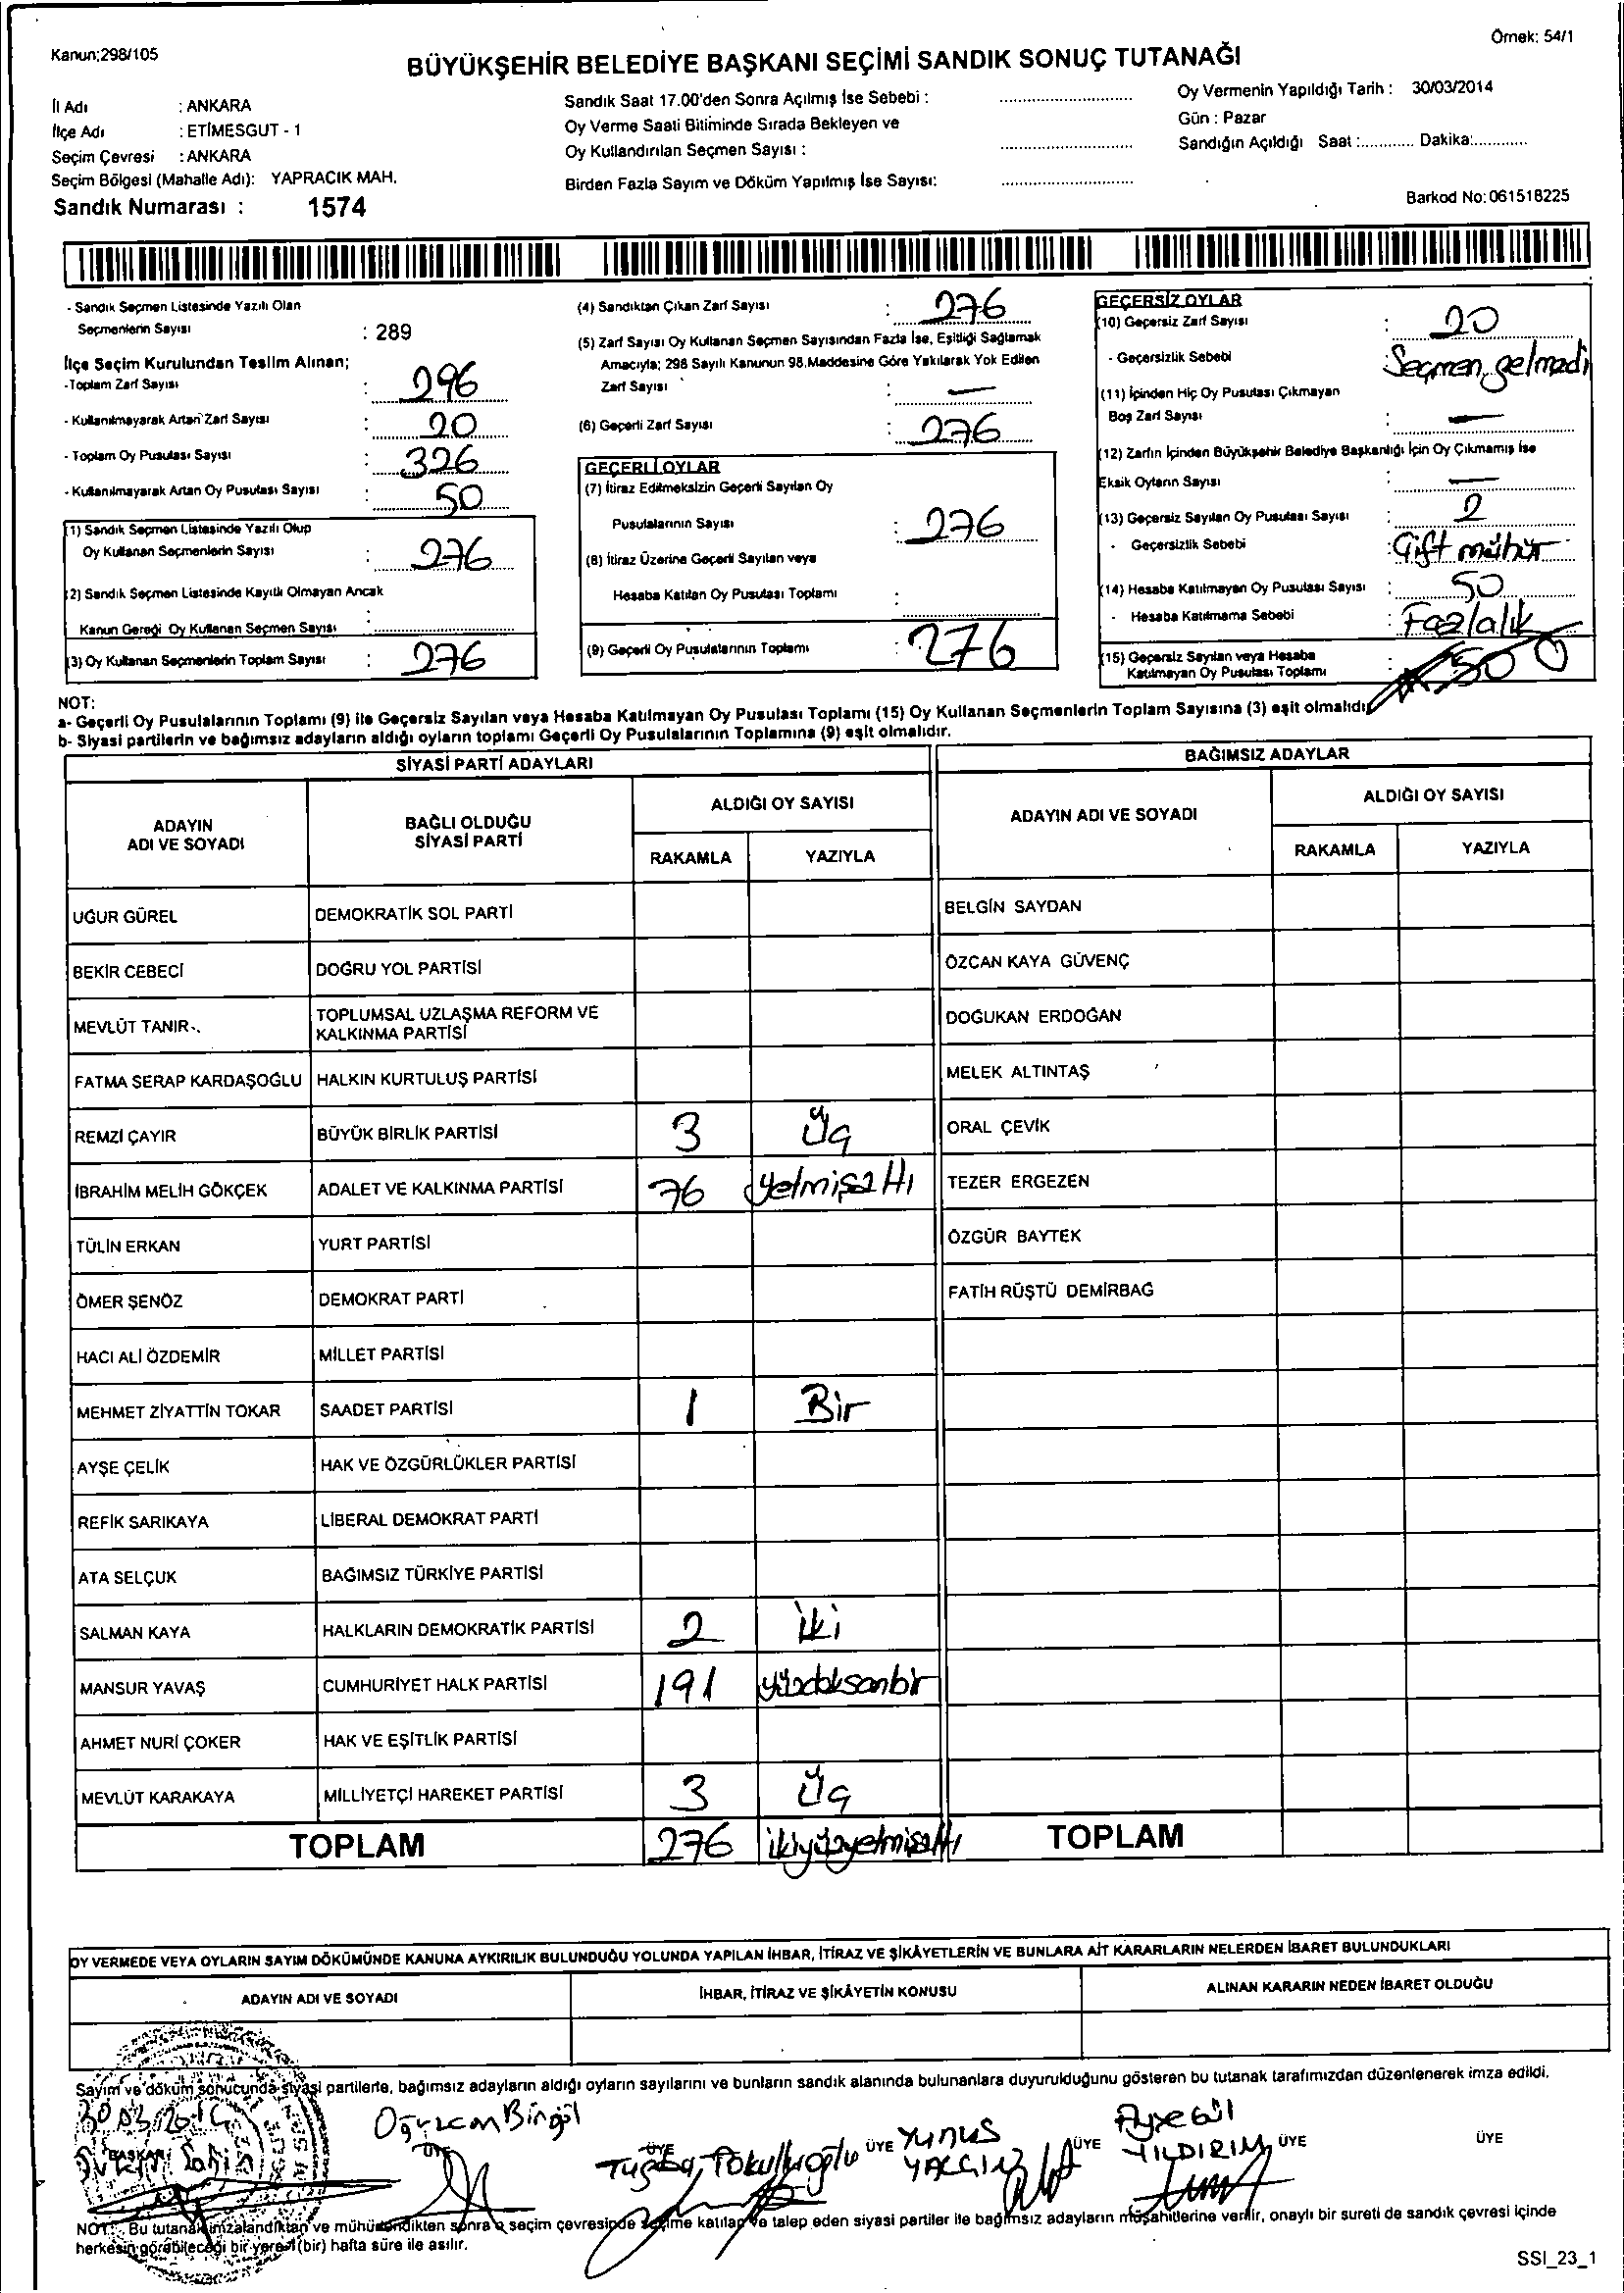 Kanun:298/105
Örnek: 54/1
BÜYÜKŞEHİR BELEDİYE BAŞKANI SEÇİMİ SANDIK SONUÇ TUTANAĞI
İl Adı : ANKARA
İlçe Adı : ETİMESGUT - 1
Seçim Çevresi : ANKARA
Seçim Bölgesi (Mahalle Adı): YAPRACIK MAH.
Sandık Numarası : 1574
Sandık Saat 17.00'den Sonra Açılmış İse Sebebi :
Oy Verme Saati Bitiminde Sırada Bekleyen ve
Oy Kullandırılan Seçmen Sayısı :
Birden Fazla Sayım ve Döküm Yapılmış İse Sayısı:
Oy Vermenin Yapıldığı Tarih : 30/03/2014
Gün : Pazar
Sandığın Açıldığı Saat :............ Dakika:............
Barkod No:061518225
- Sandık Seçmen Listesinde Yazılı Olan
Seçmenlerin Sayısı : 289
İlçe Seçim Kurulundan Teslim Alınan;
-Toplam Zarf Sayısı : 296
- Kullanılmayarak Artan Zarf Sayısı : 20
- Toplam Oy Pusulası Sayısı : 326
- Kullanılmayarak Artan Oy Pusulası Sayısı : 50
(1) Sandık Seçmen Listesinde Yazılı Olup
Oy Kullanan Seçmenlerin Sayısı : 276
(2) Sandık Seçmen Listesinde Kayıtlı Olmayan Ancak
Kanun Gereği Oy Kullanan Seçmen Sayısı :
(3) Oy Kullanan Seçmenlerin Toplam Sayısı : 276
(4) Sandıktan Çıkan Zarf Sayısı : 276
(5) Zarf Sayısı Oy Kullanan Seçmen Sayısından Fazla İse, Eşitliği Sağlamak
Amacıyla; 298 Sayılı Kanunun 98.Maddesine Göre Yakılarak Yok Edilen
Zarf Sayısı : —
(6) Geçerli Zarf Sayısı : 276
GEÇERLİ OYLAR
(7) İtiraz Edilmeksizin Geçerli Sayılan Oy
Pusulalarının Sayısı : 276
(8) İtiraz Üzerine Geçerli Sayılan veya
Hesaba Katılan Oy Pusulası Toplamı :
(9) Geçerli Oy Pusulalarının Toplamı : 276
GEÇERSİZ OYLAR
(10) Geçersiz Zarf Sayısı : 20
- Geçersizlik Sebebi : Seçmen gelmedi
(11) İçinden Hiç Oy Pusulası Çıkmayan
Boş Zarf Sayısı : —
(12) Zarfın İçinden Büyükşehir Belediye Başkanlığı İçin Oy Çıkmamış İse
Eksik Oyların Sayısı : —
(13) Geçersiz Sayılan Oy Pusulası Sayısı : 2
- Geçersizlik Sebebi : Çift mühür
(14) Hesaba Katılmayan Oy Pusulası Sayısı : 50
- Hesaba Katılmama Sebebi : Fazlalık
(15) Geçersiz Sayılan veya Hesaba
Katılmayan Oy Pusulası Toplamı : 50
NOT:
a- Geçerli Oy Pusulalarının Toplamı (9) ile Geçersiz Sayılan veya Hesaba Katılmayan Oy Pusulası Toplamı (15) Oy Kullanan Seçmenlerin Toplam Sayısına (3) eşit olmalıdır
b- Siyasi partilerin ve bağımsız adayların aldığı oyların toplamı Geçerli Oy Pusulalarının Toplamına (9) eşit olmalıdır.
SİYASİ PARTİ ADAYLARI
ADAYIN ADI VE SOYADI
BAĞLI OLDUĞU SİYASİ PARTİ
ALDIĞI OY SAYISI
RAKAMLA YAZIYLA
UĞUR GÜREL DEMOKRATİK SOL PARTİ
BEKİR CEBECİ DOĞRU YOL PARTİSİ
MEVLÜT TANIR TOPLUMSAL UZLAŞMA REFORM VE KALKINMA PARTİSİ
FATMA SERAP KARDAŞOĞLU HALKIN KURTULUŞ PARTİSİ
REMZİ ÇAYIR BÜYÜK BİRLİK PARTİSİ 3 Üç
İBRAHİM MELİH GÖKÇEK ADALET VE KALKINMA PARTİSİ 76 yetmişaltı
TÜLİN ERKAN YURT PARTİSİ
ÖMER ŞENÖZ DEMOKRAT PARTİ
HACI ALİ ÖZDEMİR MİLLET PARTİSİ
MEHMET ZİYATTİN TOKAR SAADET PARTİSİ 1 Bir
AYŞE ÇELİK HAK VE ÖZGÜRLÜKLER PARTİSİ
REFİK SARIKAYA LİBERAL DEMOKRAT PARTİ
ATA SELÇUK BAĞIMSIZ TÜRKİYE PARTİSİ
SALMAN KAYA HALKLARIN DEMOKRATİK PARTİSİ 2 iki
MANSUR YAVAŞ CUMHURİYET HALK PARTİSİ 191 yüzdoksanbir
AHMET NURİ ÇOKER HAK VE EŞİTLİK PARTİSİ
MEVLÜT KARAKAYA MİLLİYETÇİ HAREKET PARTİSİ 3 Üç
TOPLAM 276 ikiyüzyetmişaltı
BAĞIMSIZ ADAYLAR
ADAYIN ADI VE SOYADI
ALDIĞI OY SAYISI
RAKAMLA YAZIYLA
BELGİN SAYDAN
ÖZCAN KAYA GÜVENÇ
DOĞUKAN ERDOĞAN
MELEK ALTINTAŞ
ORAL ÇEVİK
TEZER ERGEZEN
ÖZGÜR BAYTEK
FATİH RÜŞTÜ DEMİRBAĞ
TOPLAM
OY VERMEDE VEYA OYLARIN SAYIM DÖKÜMÜNDE KANUNA AYKIRILIK BULUNDUĞU YOLUNDA YAPILAN İHBAR, İTİRAZ VE ŞİKÂYETLERİN VE BUNLARA AİT KARARLARIN NELERDEN İBARET BULUNDUKLARI
ADAYIN ADI VE SOYADI
İHBAR, İTİRAZ VE ŞİKÂYETİN KONUSU
ALINAN KARARIN NEDEN İBARET OLDUĞU
Sayım ve döküm sonucunda siyasi partilerle, bağımsız adayların aldığı oyların sayılarını ve bunların sandık alanında bulunanlara duyurulduğunu gösteren bu tutanak tarafımızdan düzenlenerek imza edildi.
30.03.2014
BAŞKAN Şahin
Oğuzcan Bingöl
ÜYE
ÜYE
Tuğba
ÜYE
YUNUS YALÇIN
ÜYE
Ayşegül YILDIRIM
ÜYE
ÜYE
NOT: Bu tutanak imzalandıktan ve mühürlendikten sonra o seçim çevresinde seçime katılan ve talep eden siyasi partiler ile bağımsız adayların müşahitlerine verilir, onaylı bir sureti de sandık çevresi içinde
herkesin görebileceği bir yere 1 (bir) hafta süre ile asılır.
SSI_23_1